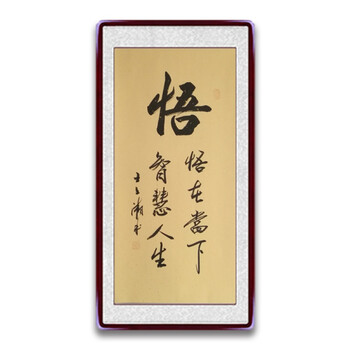 悟
悟在當下
智慧人生